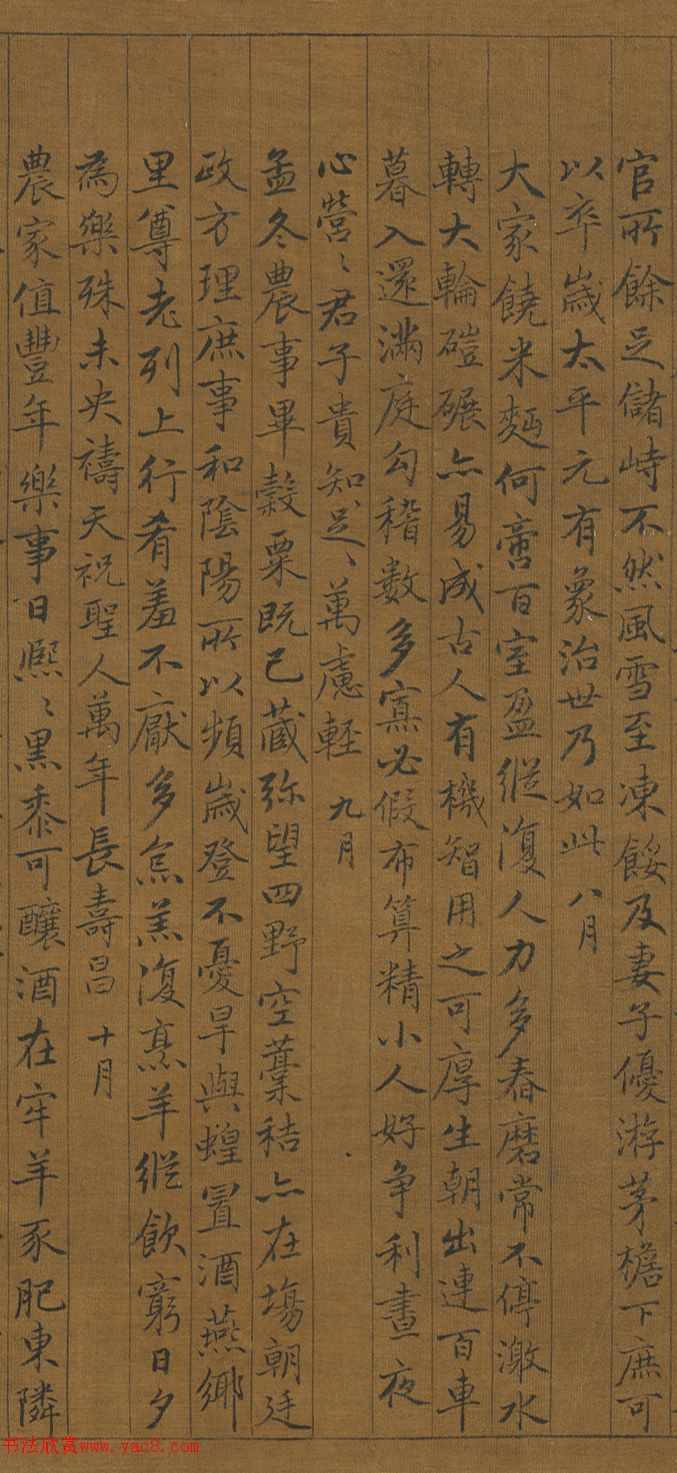 官所餘足儲峙不然風雪至凍餒及妻子優游茅檐下庶可
以卒歲太平元有象治世乃如此 八月
大家饒米麪何啻百室盈縱復人力多舂磨常不停激水
轉大輪磑碾亦易成古人有機智用之可厚生朝出連百車
暮入還滿庭勾稽數多寡必假布算精小人好争利晝夜
心營〻君子貴知足〻萬慮輕 九月
孟冬農事畢穀粟既已藏弥望四野空藁秸亦在場朝廷
政方理庶事和陰陽所以頻歲登不憂旱與蝗置酒燕鄉
里尊老列上行肴羞不厭多炰羔復烹羊縱飲窮日夕
為樂殊未央禱天祝聖人萬年長壽昌 十月
農家值豐年樂事日熈〻黑黍可釀酒在牢羊豕肥東隣
书法欣赏www.yac8.com